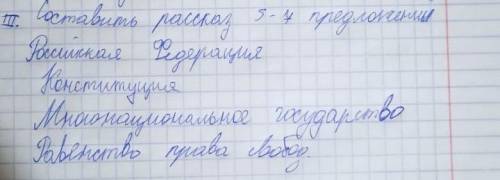 III. Составить рассказ 5-7 предложений
Российская Федерация
Конституция
Многонациональное государство
Равенство права свобод.